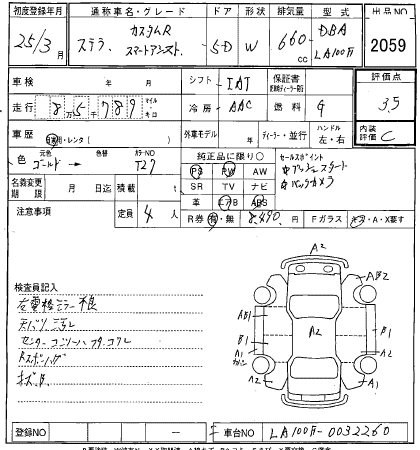 初度登録年月 通称車名・グレード ドア 形状 排気量 型式 出品NO
25/3月 ステラ カスタムR スマートアシスト 5D W 660cc DBA LA100F 2059
車検 年 月 シフト IAT 保証書 評価点
走行 8万5千789 マイル キロ 冷房 AAC 燃料 G 3.5
車歴 自家用・レンタ 外車モデル 年 ディーラー・並行 ハンドル 左・右 内装評価 C
色 元色 ゴールド 色替 カラーNO T27 純正品に限り○ セールスポイント
PS PW AW プッシュスタート
名義変更期限 月 日迄 積載 t SR TV ナビ バックカメラ
革 エアB ABS
注意事項 定員 4人 R券 有・無 8,490円 Fガラス A・X要す
A2
検査員記入 AB2
左電格ミラー不良 AB1
天バリ汚れ B1 A2 B1
センターコンソールフタ A1 A2
Rスポ A2 A1
登録NO 車台NO LA100F-0032260